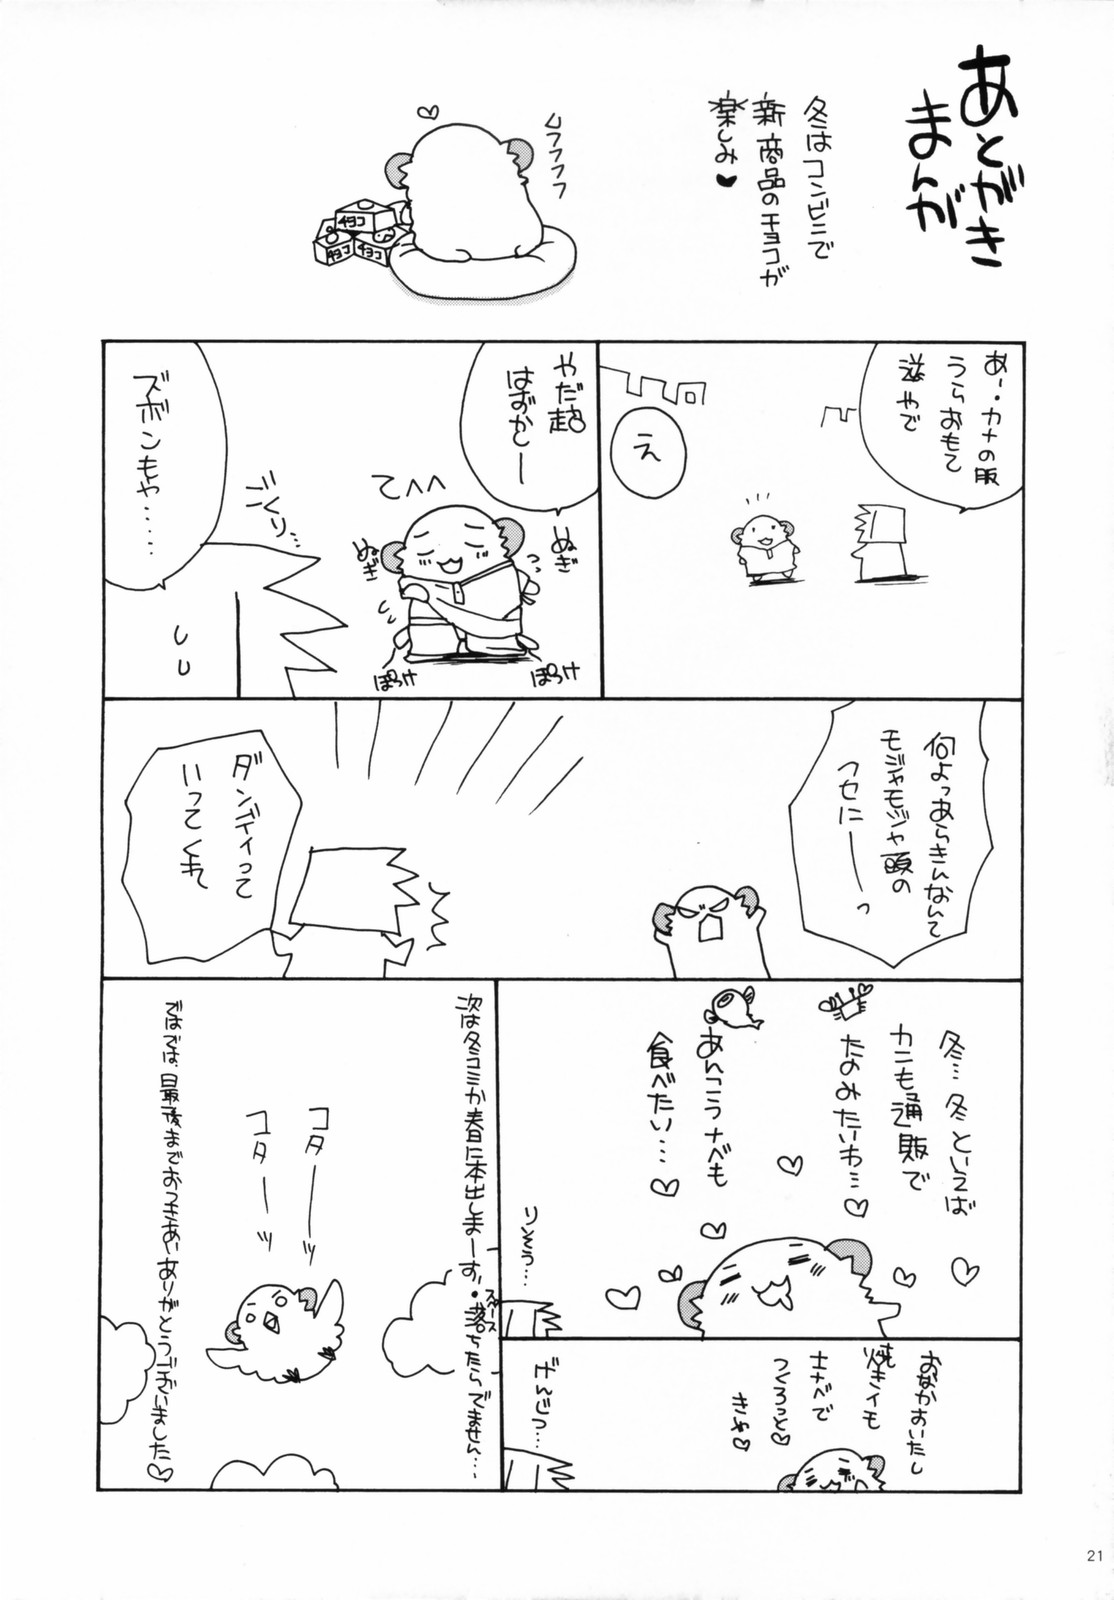 あとがき
まんが
冬はコンビニで
新商品のチョコが
楽しみ♥
ムフフフフ
チョコ
チョコ
チョコ
あー・カナの服
うらおもて
逆やで
え
やだ超
はずかしー
てへへ
ぬぎ
ぬぎ
ぽろけ
ぽろけ
ごくり…
ズボンもや……
何よっあらきんなんて
モジャモジャ頭の
クセにーーっ
ダンディって
いってくれ
冬…冬といえば
カニも通販で
たのみたいわ…♡
あんこうナベも
食べたい…♡
りそう…
おなかすいたし
焼きイモ
ナベで
つくろっと♡
きゃ♡
げんじつ…
次は冬コミか春に本出しまーす。・落ちたらでません…
スペース
コターーッ
コターーッ
ではでは、最後までおつきあいありがとうございました♡
21